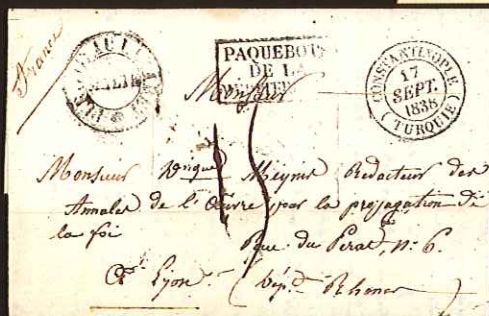 France
PAQUEBOTS
DE LA
CONSTANTINOPLE
17
SEPT.
1838
(TURQUIE)
Monsieur
15
Monsieur Meynis Redacteur des
Annales de l'Œuvre pour la propagation de
la foi
Rue du Perat, n° 6.
A Lyon (Dép.t Rhone)